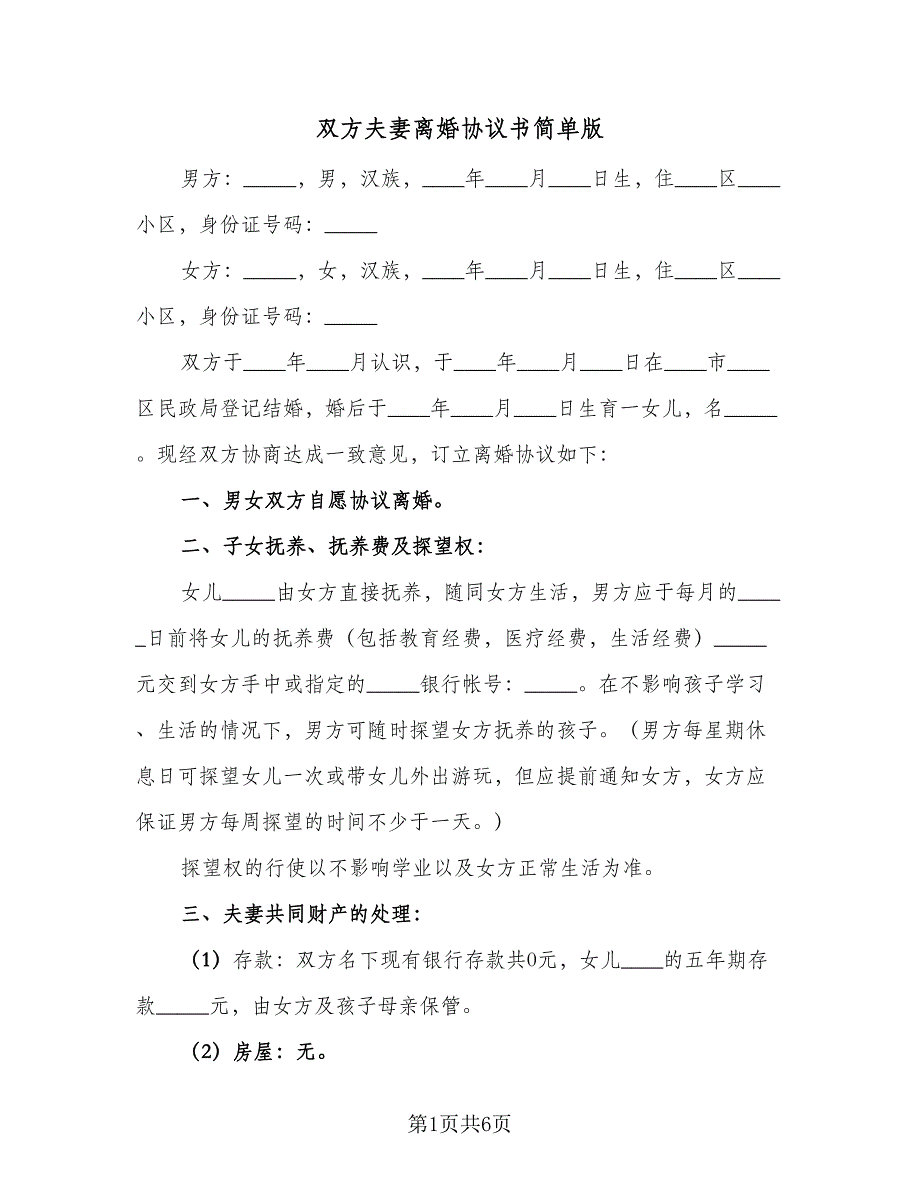 双方夫妻离婚协议书简单版
男方：_____，男，汉族，____年____月____日生，住____区____
小区，身份证号码：_____
女方：_____，女，汉族，____年____月____日生，住____区____
小区，身份证号码：_____
双方于____年____月认识，于____年____月____日在____市____
区民政局登记结婚，婚后于____年____月____日生育一女儿，名_____
。现经双方协商达成一致意见，订立离婚协议如下：
一、男女双方自愿协议离婚。
二、子女抚养、抚养费及探望权：
女儿_____由女方直接抚养，随同女方生活，男方应于每月的____
_日前将女儿的抚养费（包括教育经费，医疗经费，生活经费）_____
元交到女方手中或指定的_____银行帐号：_____。在不影响孩子学习
、生活的情况下，男方可随时探望女方抚养的孩子。（男方每星期休
息日可探望女儿一次或带女儿外出游玩，但应提前通知女方，女方应
保证男方每周探望的时间不少于一天。）
探望权的行使以不影响学业以及女方正常生活为准。
三、夫妻共同财产的处理：
（1）存款：双方名下现有银行存款共0元，女儿____的五年期存
款_____元，由女方及孩子母亲保管。
（2）房屋：无。
第1页共6页